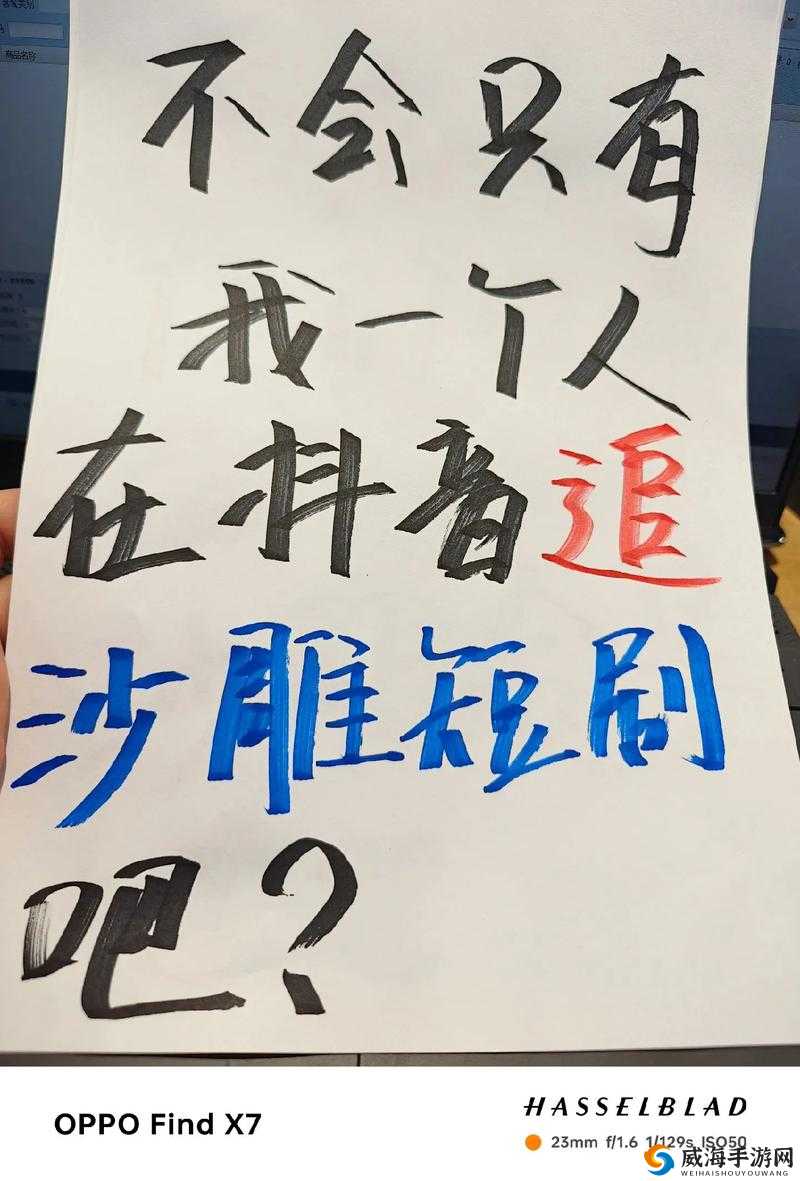 不会只有
我一个人
在抖音追
沙雕短刷
吧？
商品名称
OPPO Find X7
HASSELBLAD
23mm f/1.6 1/129s ISO50
威海手游网
WEIHAISHOUYOUWANG